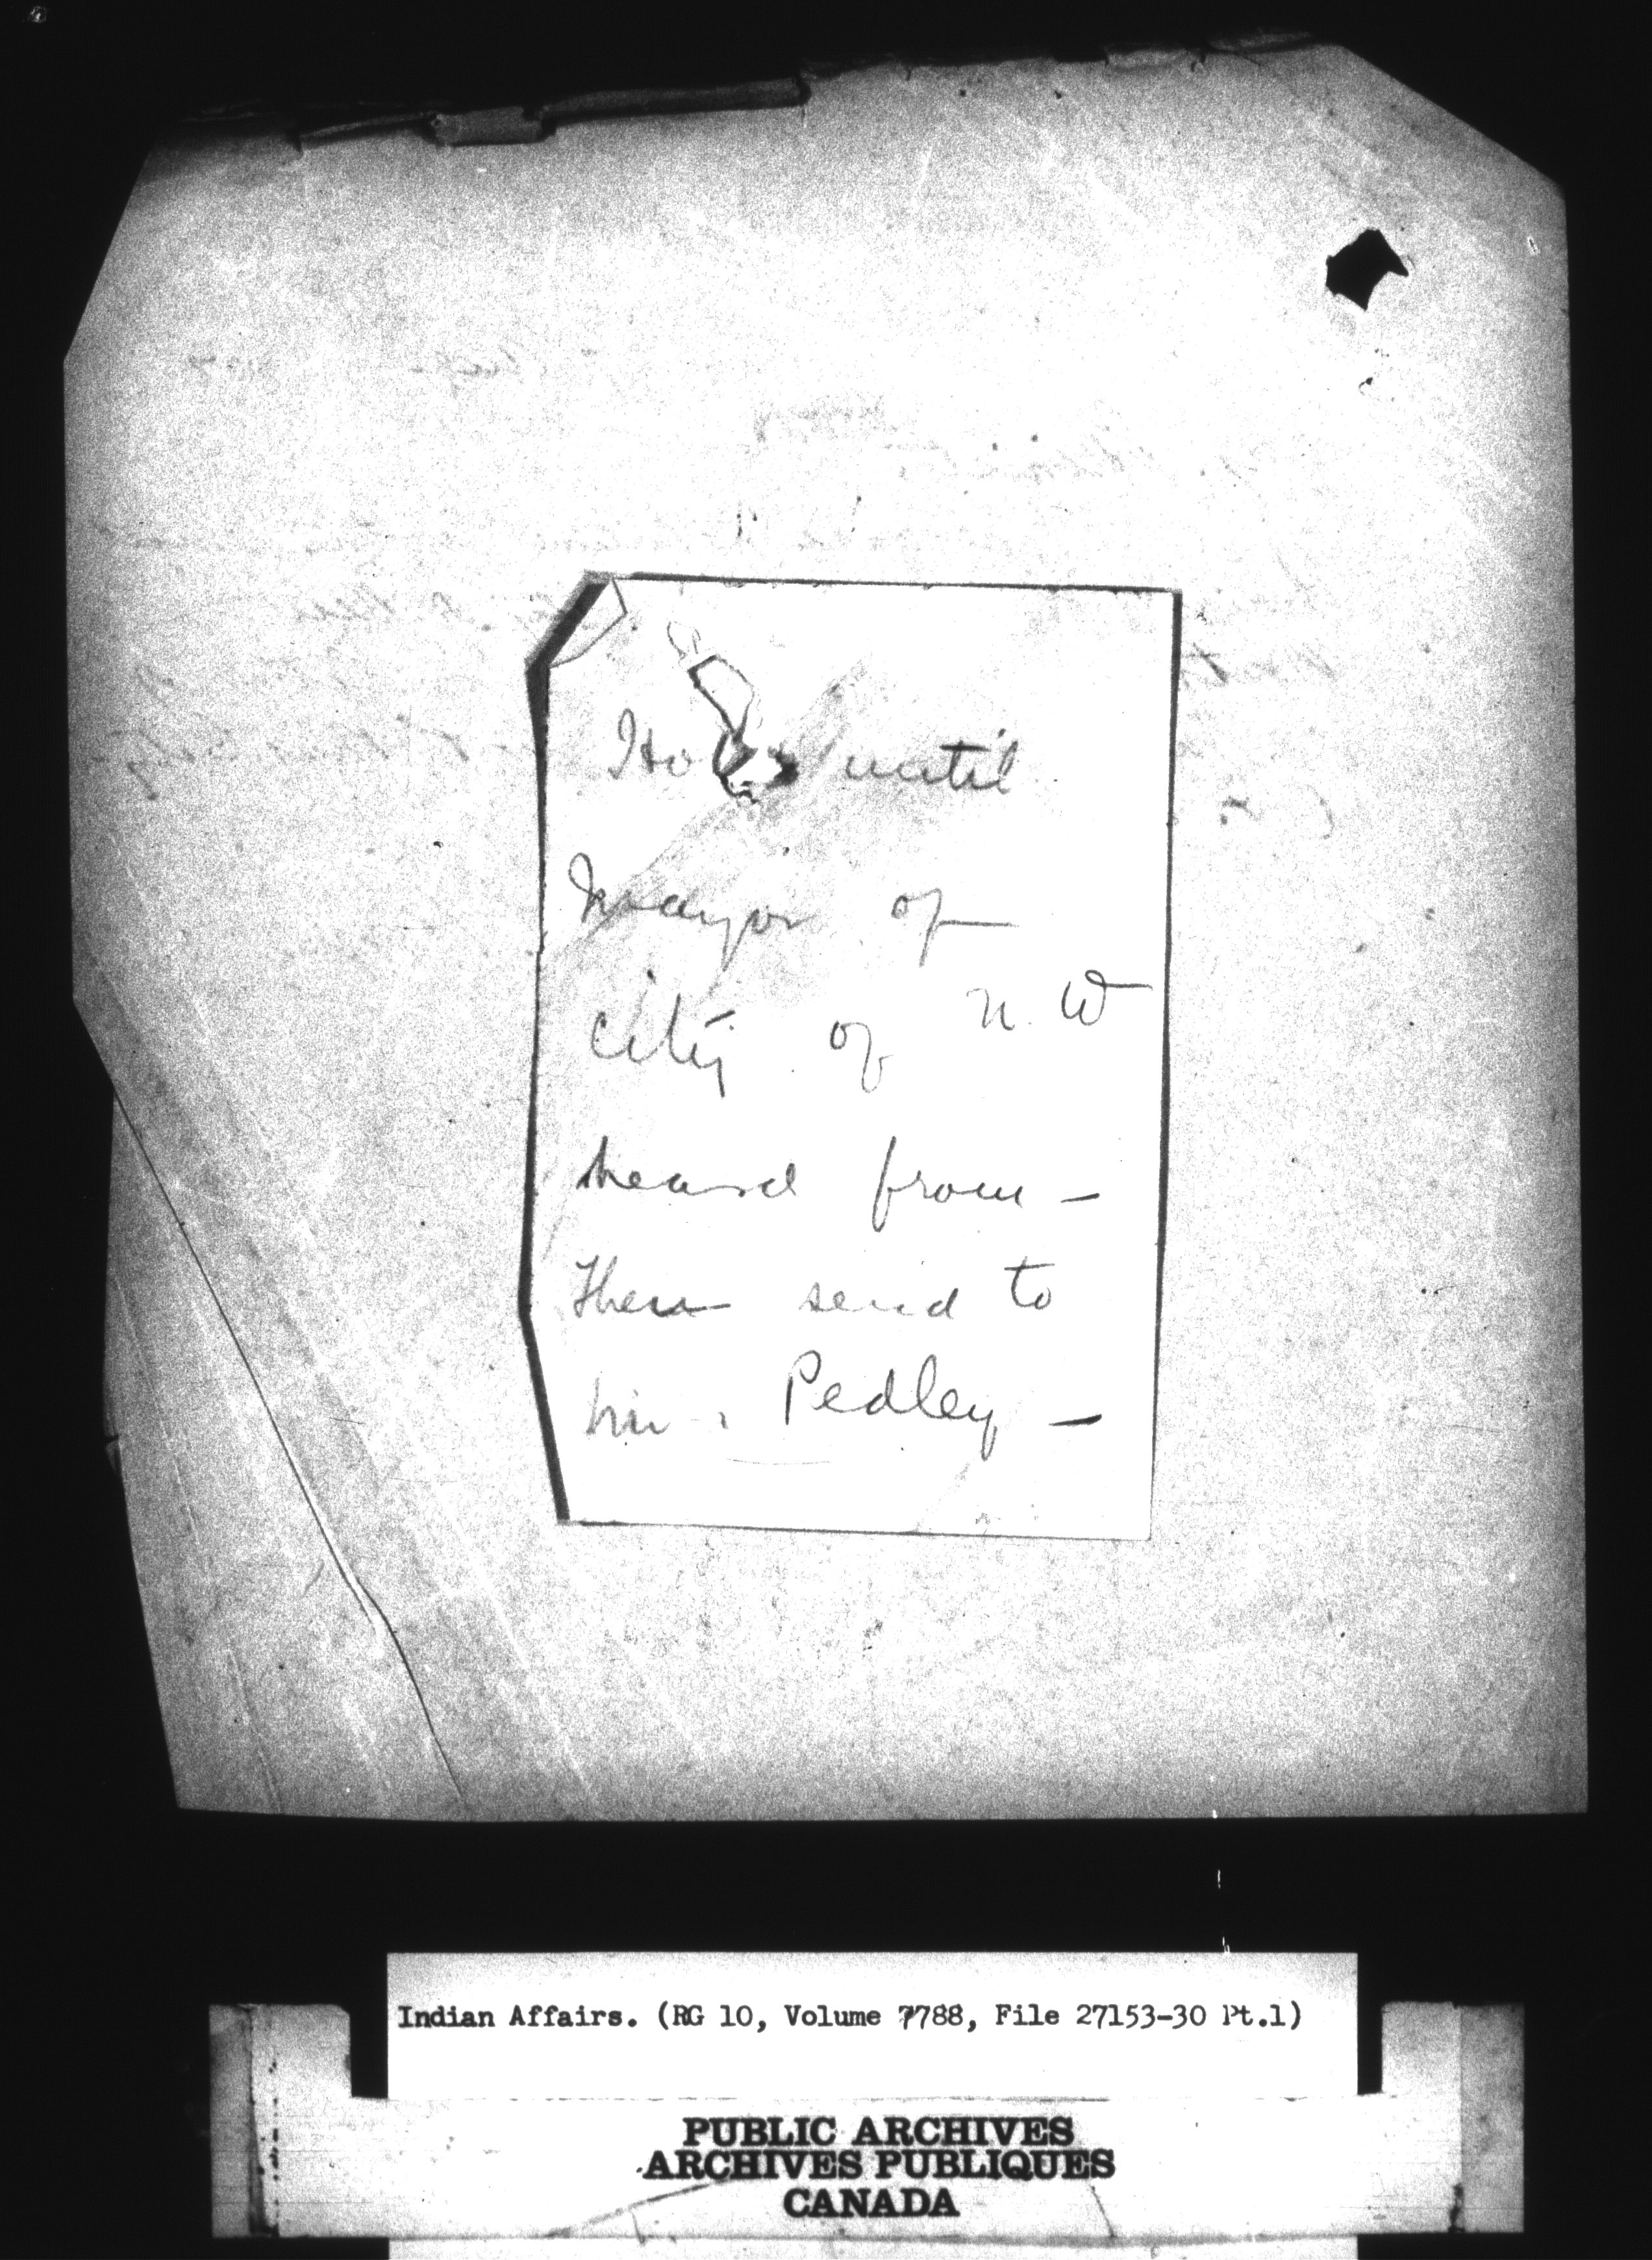 Hold until
Mayor of
City of N. W
heard from –
Then send to
Mr. Pedley –
Indian Affairs. (RG 10, Volume 7788, File 27153-30 Pt.1)
PUBLIC ARCHIVES
ARCHIVES PUBLIQUES
CANADA